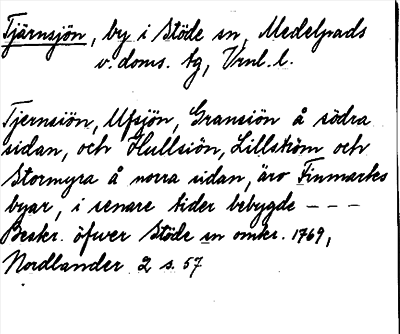 Tjärnsjön, by i Stöde sn, Medelpads
v. doms. tg, Vrnl. l.
Tjernsiön, Ufsjön, Gransiön å södra
sidan, och Hullsiön, Lillström och
Stormyra å norra sidan, äro Finmarks
byar, i senare tider bebygde – – –
Beskr. öfwer Stöde sn omkr. 1769,
Nordlander 2 s. 57